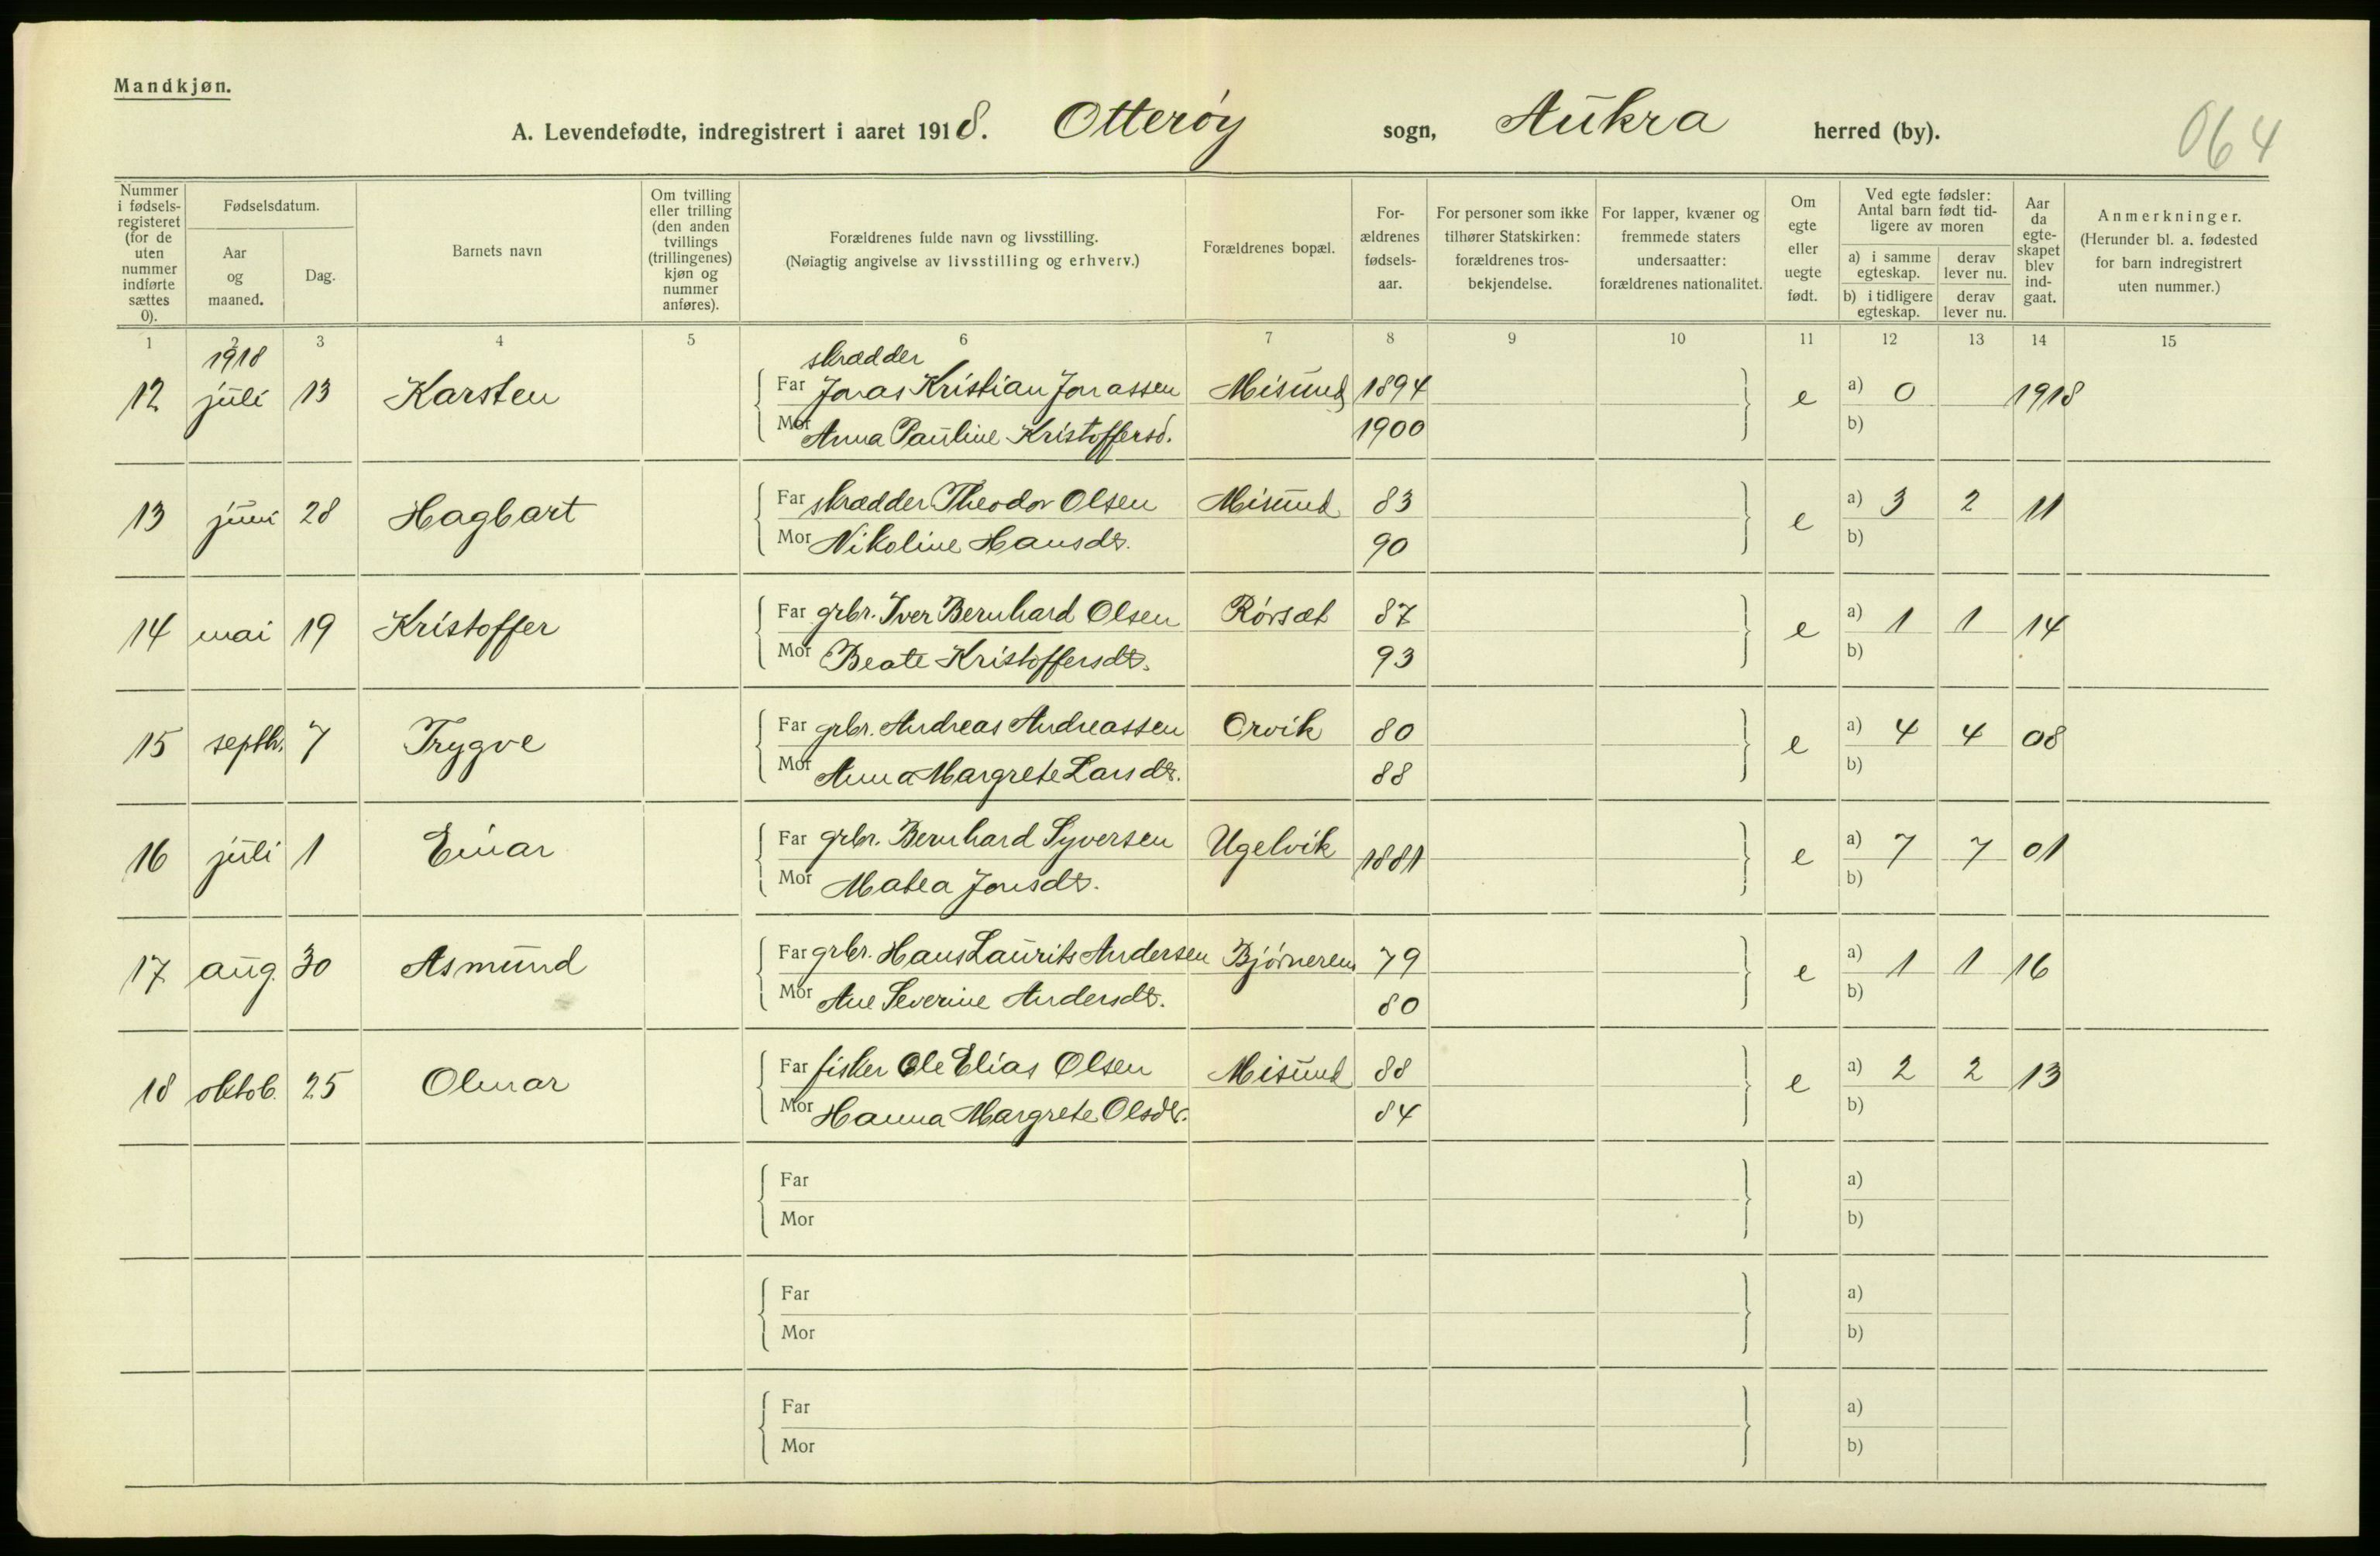 Mandkjøn.
A. Levendefødte, indregistrert i aaret 1918. Otterøy sogn, Aukra herred (by).
064
Nummer i fødsels-registeret (for de uten nummer indførte sættes 0).
Fødselsdatum.
Aar og maaned.
Dag.
Barnets navn
Om tvilling eller trilling (den anden tvillings (trillingenes) kjøn og nummer anføres).
Forældrenes fulde navn og livsstilling.
(Nøiagtig angivelse av livsstilling og erhverv.)
Forældrenes bopæl.
For-ældrenes fødsels-aar.
For personer som ikke tilhører Statskirken: forældrenes tros-bekjendelse.
For lapper, kvæner og fremmede staters undersaatter: forældrenes nationalitet.
Om egte eller uegte født.
Ved egte fødsler: Antal barn født tid-ligere av moren
a) i samme egteskap.
derav lever nu.
b) i tidligere egteskap.
derav lever nu.
Aar da egte-skapet blev ind-gaat.
Anmerkninger.
(Herunder bl. a. fødested for barn indregistrert uten nummer.)
1 2 3 4 5 6 7 8 9 10 11 12 13 14 15
1918
skrædder
12 juli 13 Karsten Far Jonas Kristian Jonassen Misund 1894 e a) 0 1918
Mor Anna Pauline Kristoffersd. 1900 b)
13 juni 28 Hagbart Far skrædder Theodor Olsen Misund 83 e a) 3 2 11
Mor Nikoline Hansdt. 90 b)
14 mai 19 Kristoffer Far grbr. Iver Bernhard Olsen Rørsæt 87 e a) 1 1 14
Mor Beate Kristoffersdt. 93 b)
15 septb. 7 Trygve Far grbr. Andreas Andreassen Orvik 80 e a) 4 4 08
Mor Anna Margrete Larsdt. 88 b)
16 juli 1 Einar Far grbr. Bernhard Syversen Ugelvik 1881 e a) 7 7 01
Mor Matea Jonsdt. b)
17 aug. 30 Asmund Far grbr. Hans Laurits Andersen Bjørnerem 79 e a) 1 1 16
Mor Ane Severine Andersdt. 80 b)
18 oktob. 25 Olmar Far fisker Ole Elias Olsen Misund 88 e a) 2 2 13
Mor Hanna Margrete Olsdt. 84 b)
Far a)
Mor b)
Far a)
Mor b)
Far a)
Mor b)